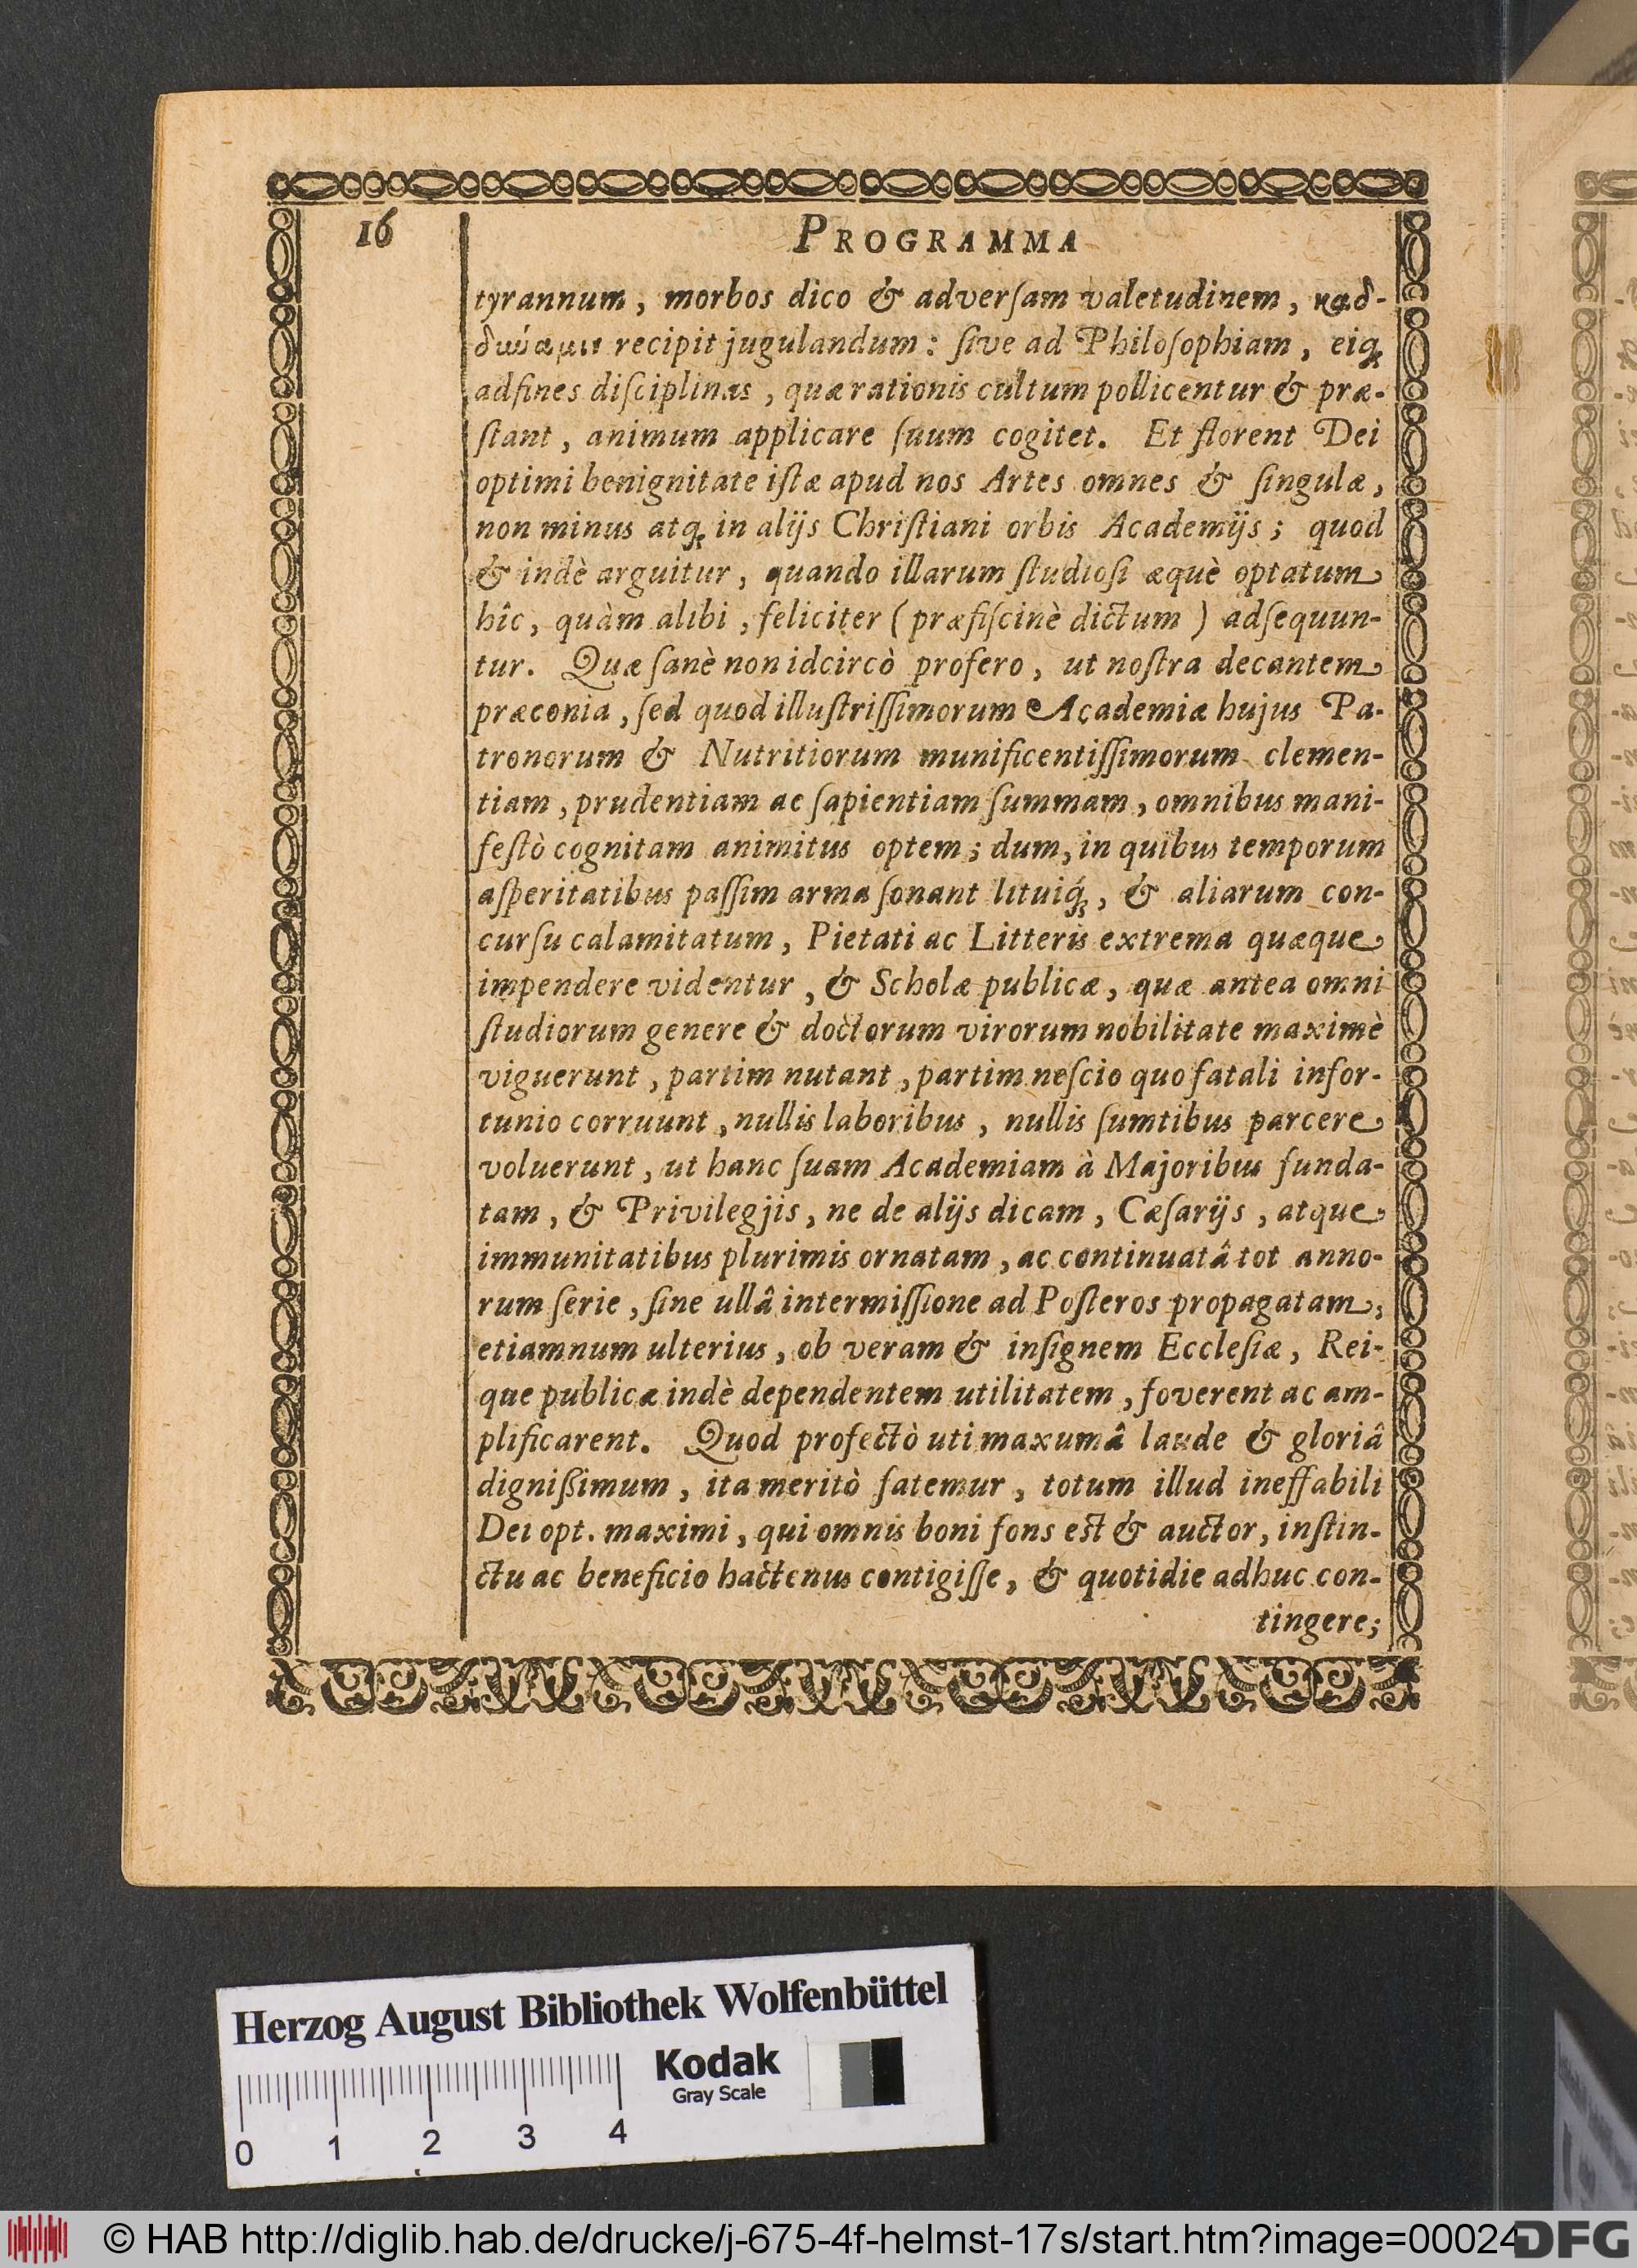 16
PROGRAMMA
tyrannum, morbos dico & adverſam valetudinem,
recipit jugulandum: ſive ad Philoſophiam, eiq́;
adfines diſciplinas, quæ rationis cultum pollicentur & præ-
ſtant, animum applicare ſuum cogitet. Et florent Dei
optimi benignitate iſtæ apud nos Artes omnes & ſingulæ,
non minus atq; in alijs Chriſtiani orbis Academijs; quod
& indè arguitur, quando illarum ſtudioſi æquè optatum
hîc, quàm alibi, feliciter (præfiſcinè dictum) adſequun-
tur. Quæ ſanè non idcircò profero, ut noſtra decantem
præconia, ſed quod illuſtriſſimorum Academiæ hujus Pa-
tronorum & Nutritiorum munificentiſſimorum clemen-
tiam, prudentiam ac ſapientiam ſummam, omnibus mani-
feſtò cognitam animitus optem; dum, in quibus temporum
aſperitatibus paſſim arma ſonant lituiq́;, & aliarum con-
curſu calamitatum, Pietati ac Litteris extrema quæque
impendere videntur, & Scholæ publicæ, quæ antea omni
ſtudiorum genere & doctorum virorum nobilitate maximè
viguerunt, partim nutant, partim neſcio quo fatali infor-
tunio corruunt, nullis laboribus, nullis ſumtibus parcere
voluerunt, ut hanc ſuam Academiam à Majoribus funda-
tam, & Privilegjis, ne de alijs dicam, Cæſarijs, atque
immunitatibus plurimis ornatam, ac continuatâ tot anno-
rum ſerie, ſine ullâ intermiſſione ad Poſteros propagatam;
etiamnum ulterius, ob veram & inſignem Eccleſiæ, Rei-
que publicæ indè dependentem utilitatem, foverent ac am-
plificarent. Quod profectò uti maxumâ laude & gloriâ
dignißimum, ita meritò fatemur, totum illud ineffabili
Dei opt. maximi, qui omnis boni fons est & auctor, inſtin-
ctu ac beneficio hactenus contigiſſe, & quotidie adhuc con-
tingere;
Herzog August Bibliothek Wolfenbüttel
Kodak
Gray Scale
0 1 2 3 4
© HAB http://diglib.hab.de/drucke/j-675-4f-helmst-17s/start.htm?image=00024
DFG